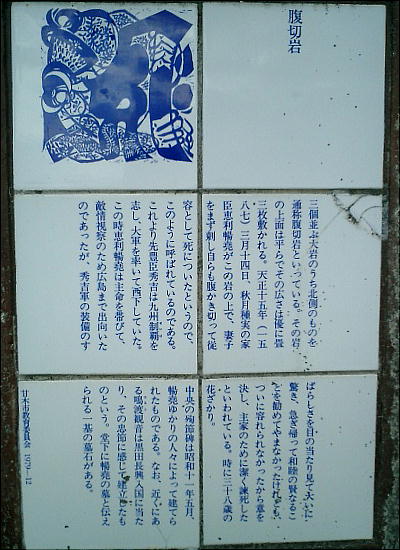 腹切岩
三個並ぶ大岩のうち北側のものを
通称腹切岩といっている。その岩
の上面は平らでその広さは優に畳
三枚敷かれる。天正十五年(一五
八七)三月十四日、秋月種実の家
臣恵利暢堯がこの岩の上で、妻子
をまず刺し自らも腹かき切って従
容として死についたというので、
このように呼ばれているのである。
これより先豊臣秀吉は九州制覇を
志し、大軍を率いて西下していた。
この時恵利暢堯は主命を帯びて、
敵情視察のため広島まで出向いた
のであったが、秀吉軍の装備のす
ばらしさを目の当たり見て大いに
驚き、急ぎ帰って和睦の賢なるこ
とを勧めてやまなかったけれども、
ついに容れられなかったから意を
決し、主家のために潔く諫死した
といわれている。時に三十八歳の
花ざかり。
中央の殉節碑は昭和十一年五月、
暢堯ゆかりの人々によって建てら
れたものである。なお、近くにあ
る鳴渡観音は黒田長興入国に当た
り、その忠節に感じて建立したも
のという。堂下に暢堯の墓と伝え
られる一基の墓石がある。
甘木市教育委員会 1979.12